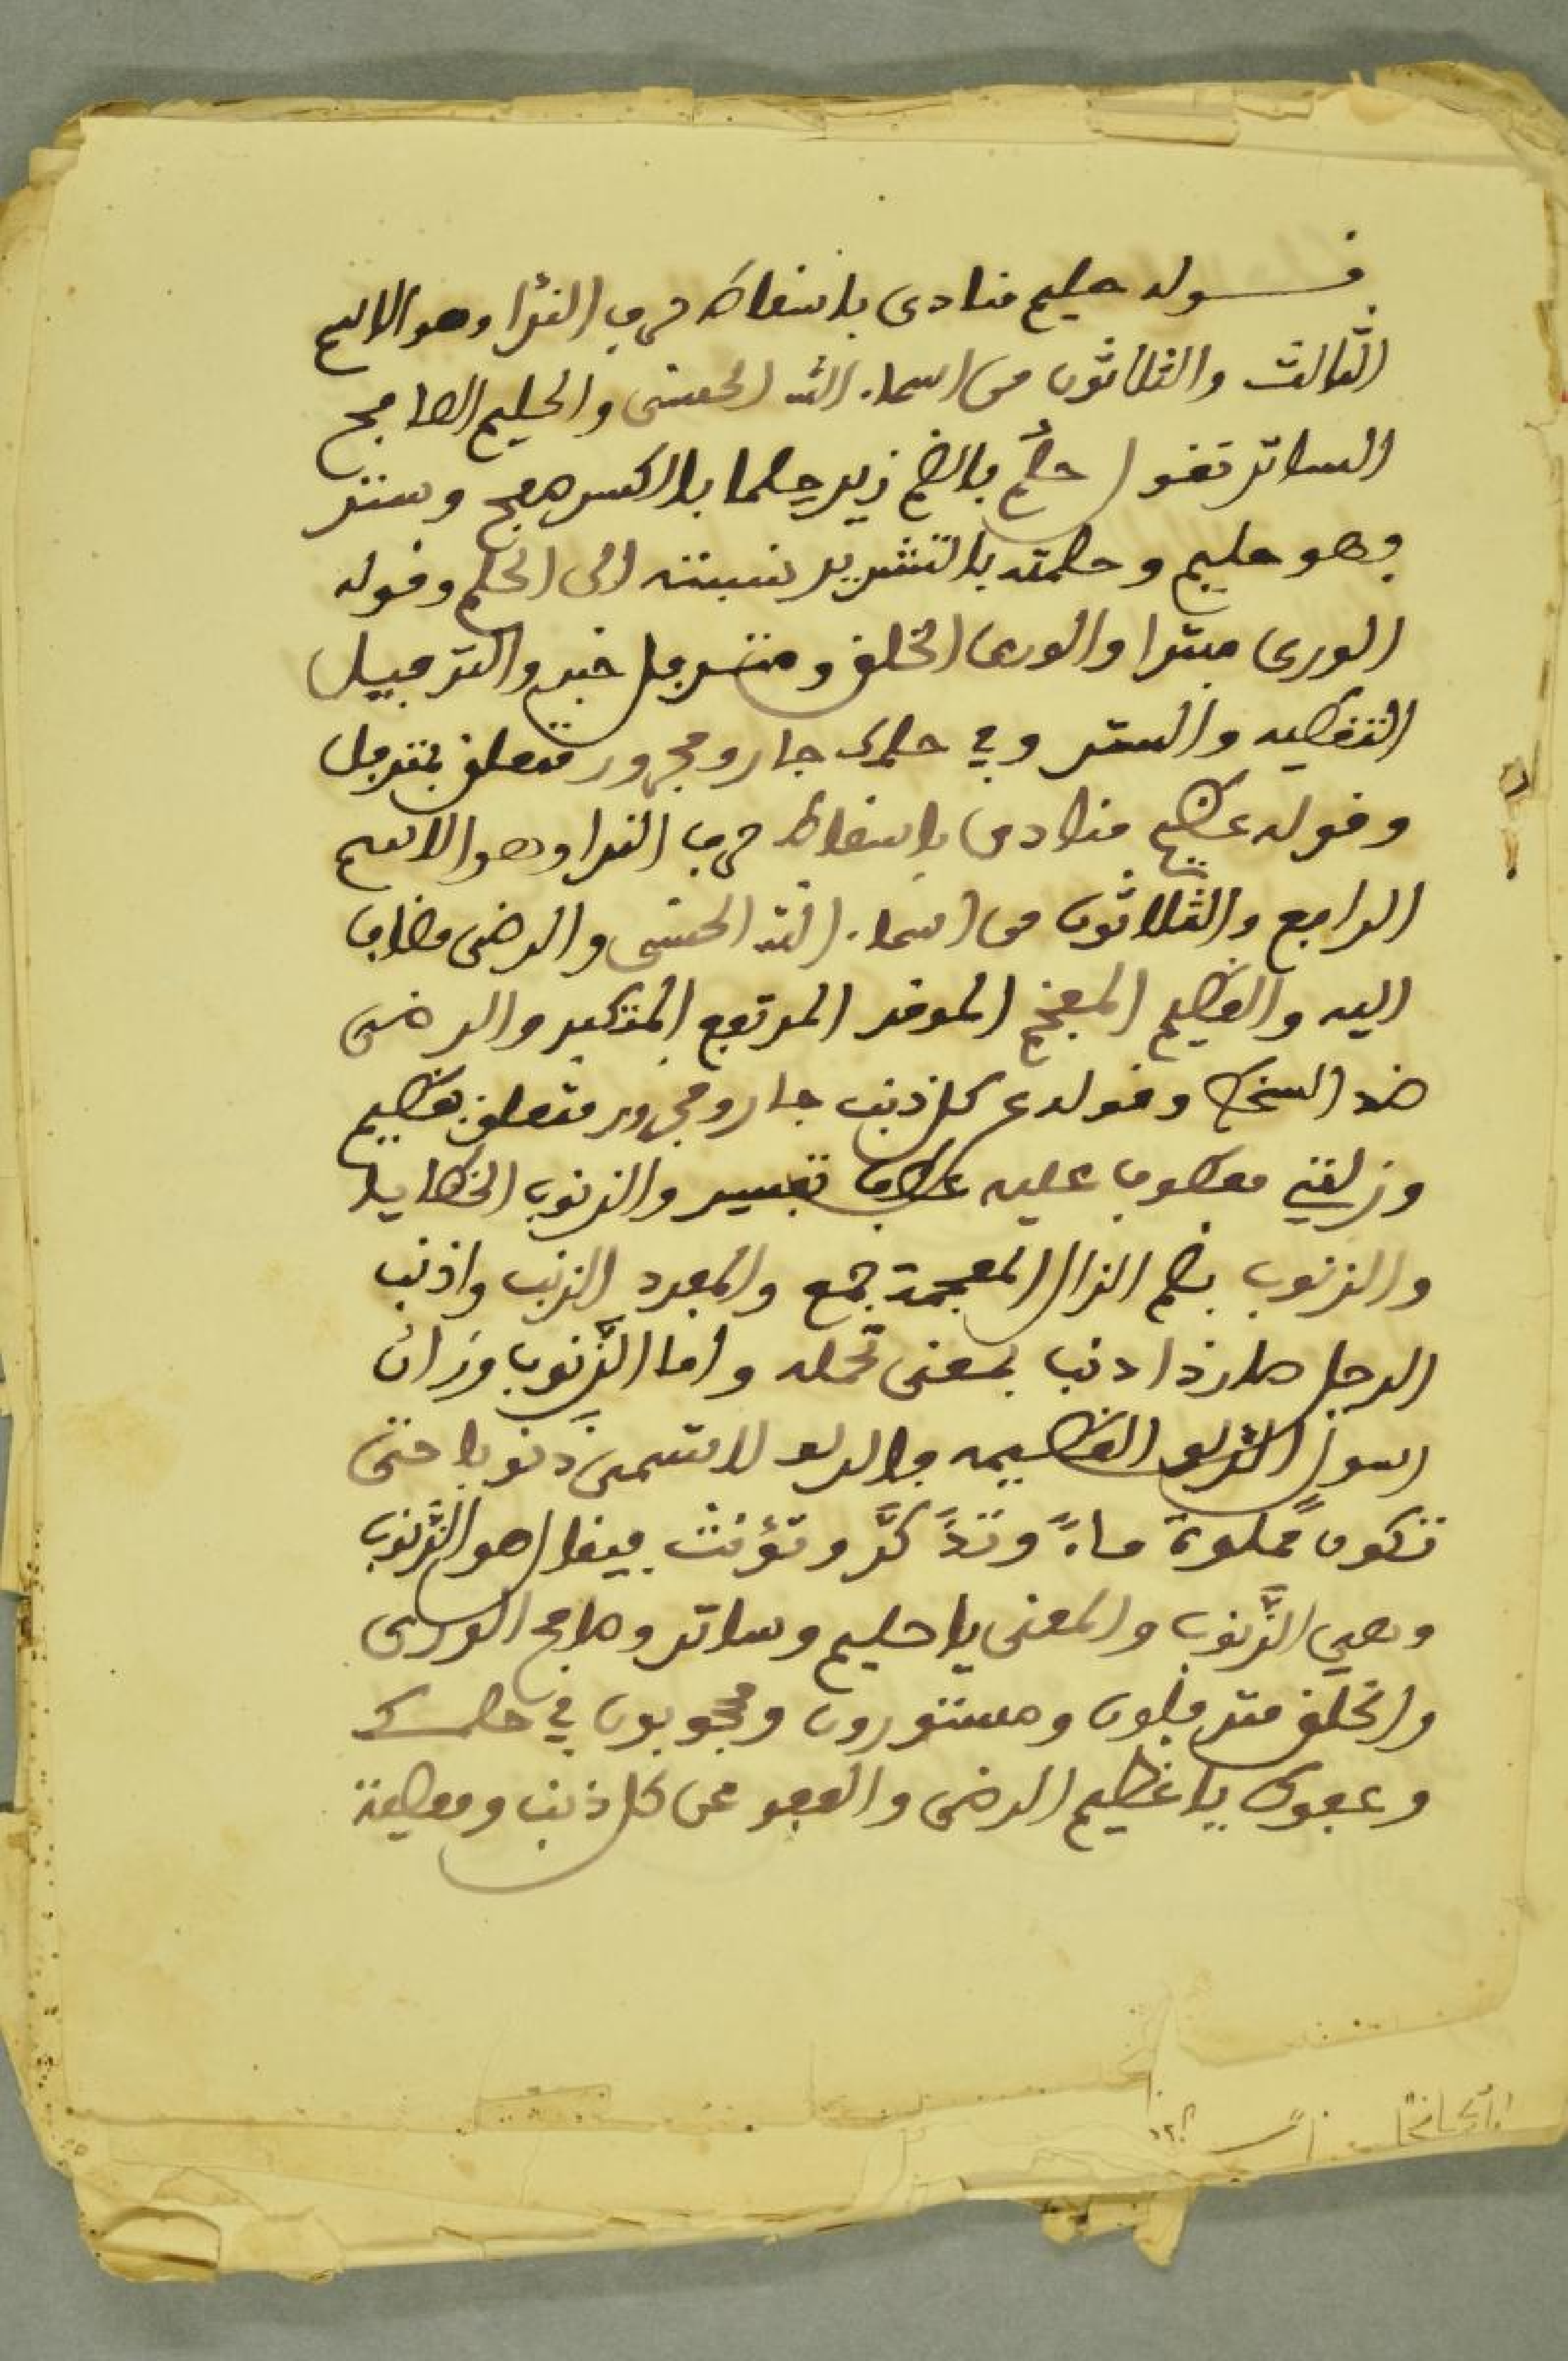 قوله حليم منادى باسقاط حرف الندا وهو الاسم
الثالث والثلاثون من اسماء الله الحسنى والحليم الصافح
الساتر تقول حلُم بالضم زيد حِلما بالكسر صفح وستر
فهو حليم وحلمته بالتشديد نسبته الى الحلم وقوله
الورى مبتدا والورى الخلق ومتسربل خبر والتسربيل
التغطيه والستر وفي حلمك جار ومجرور متعلق بمتسربل
وقوله عظيم منادى باسقاط حرف الندا وهو الاسم
الرابع والثلاثون من اسماء الله الحسنى والرضى مضاف
اليه والعظيم المفخم الموقر المرتفع المتكبر والرضى
ضد السخط وقوله عن كل ذنب جار ومجرور متعلق بعظيم
وزلتي معطوف عليه عطف تفسير والذنوب الخطايا
والذنوب بضم الذال المعجمة جمع والمفرد الذنب واذنب
الرجل صار ذا ذنب بمعنى تحمله واما الذَّنوب وزان
رسول الدلو العظيمه والدلو لا تسمى ذنوبا حتى
تكون مملوءة ماءً وتذكَّر وتؤنث فيقال هو الذنوب
وهي الذَّنوب والمعنى يا حليم وساتر وصافح الورى
والخلق متسربلون ومستورون ومحجوبون في حلمك
وعفوك يا عظيم الرضى والعفو عن كل ذنب ومعصية